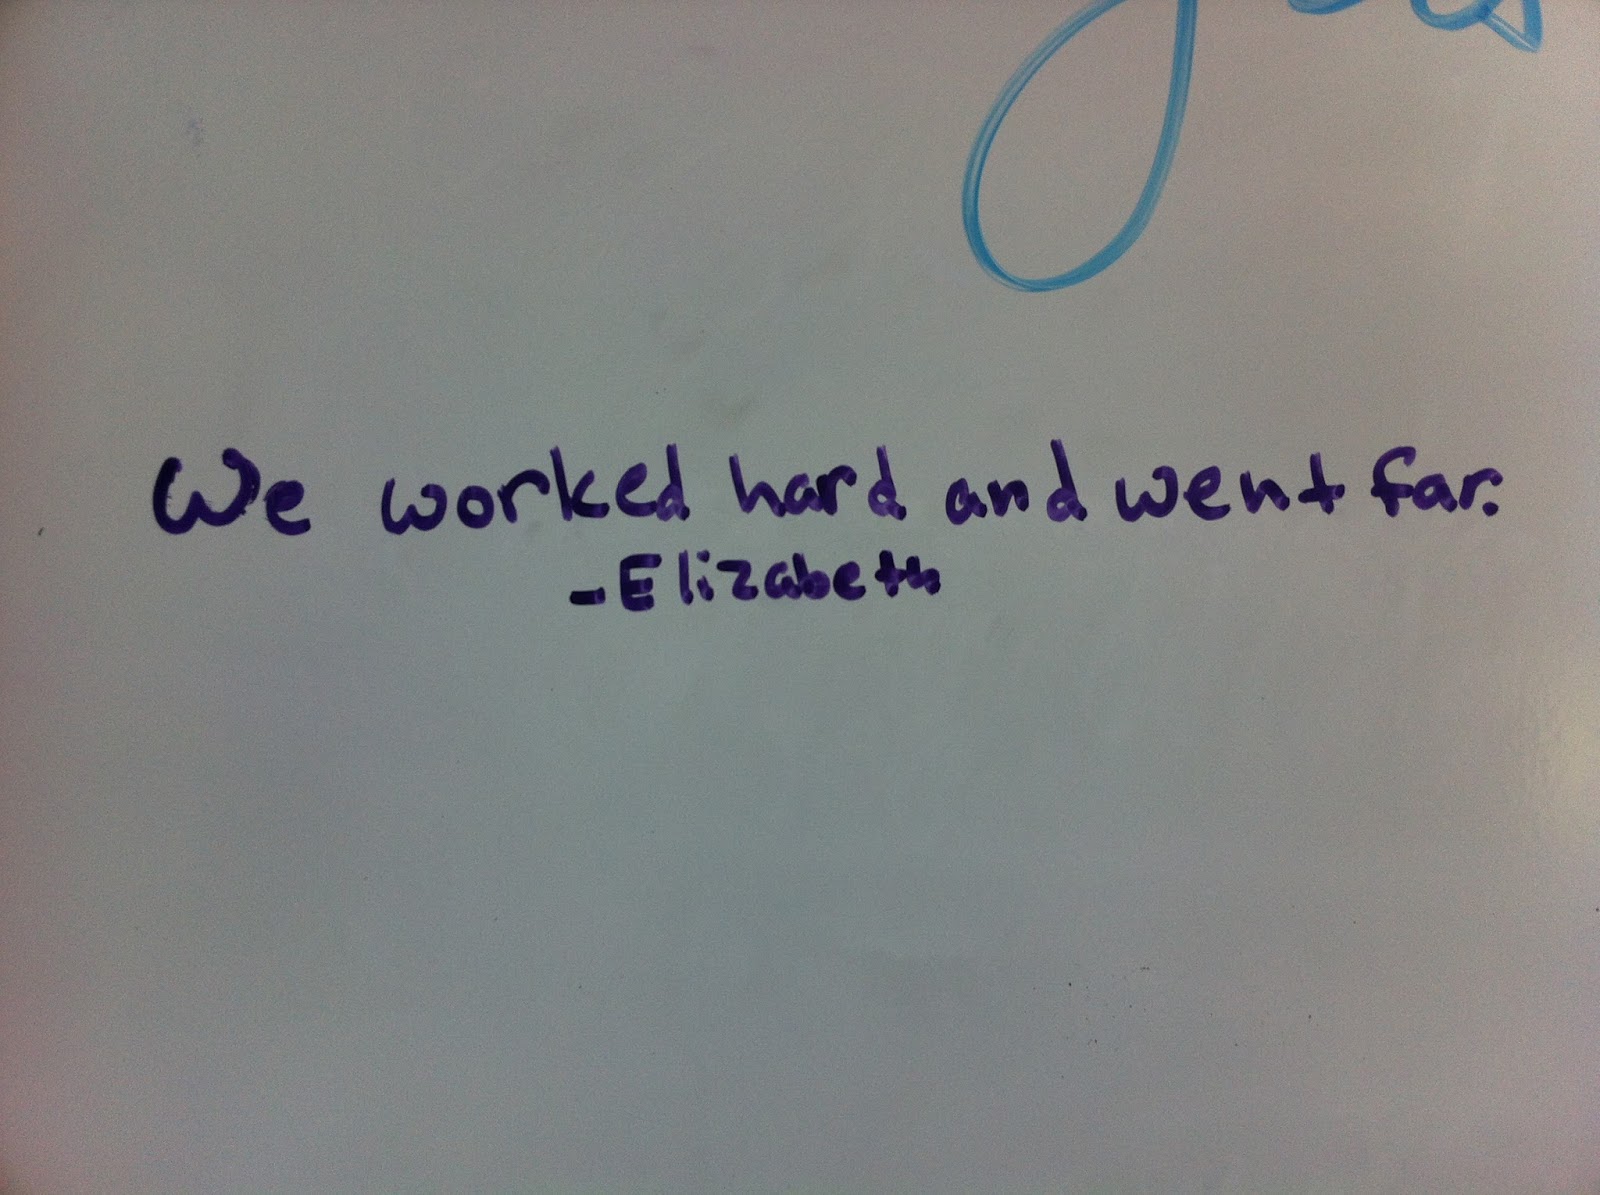 We worked hard and went far.
-Elizabeth